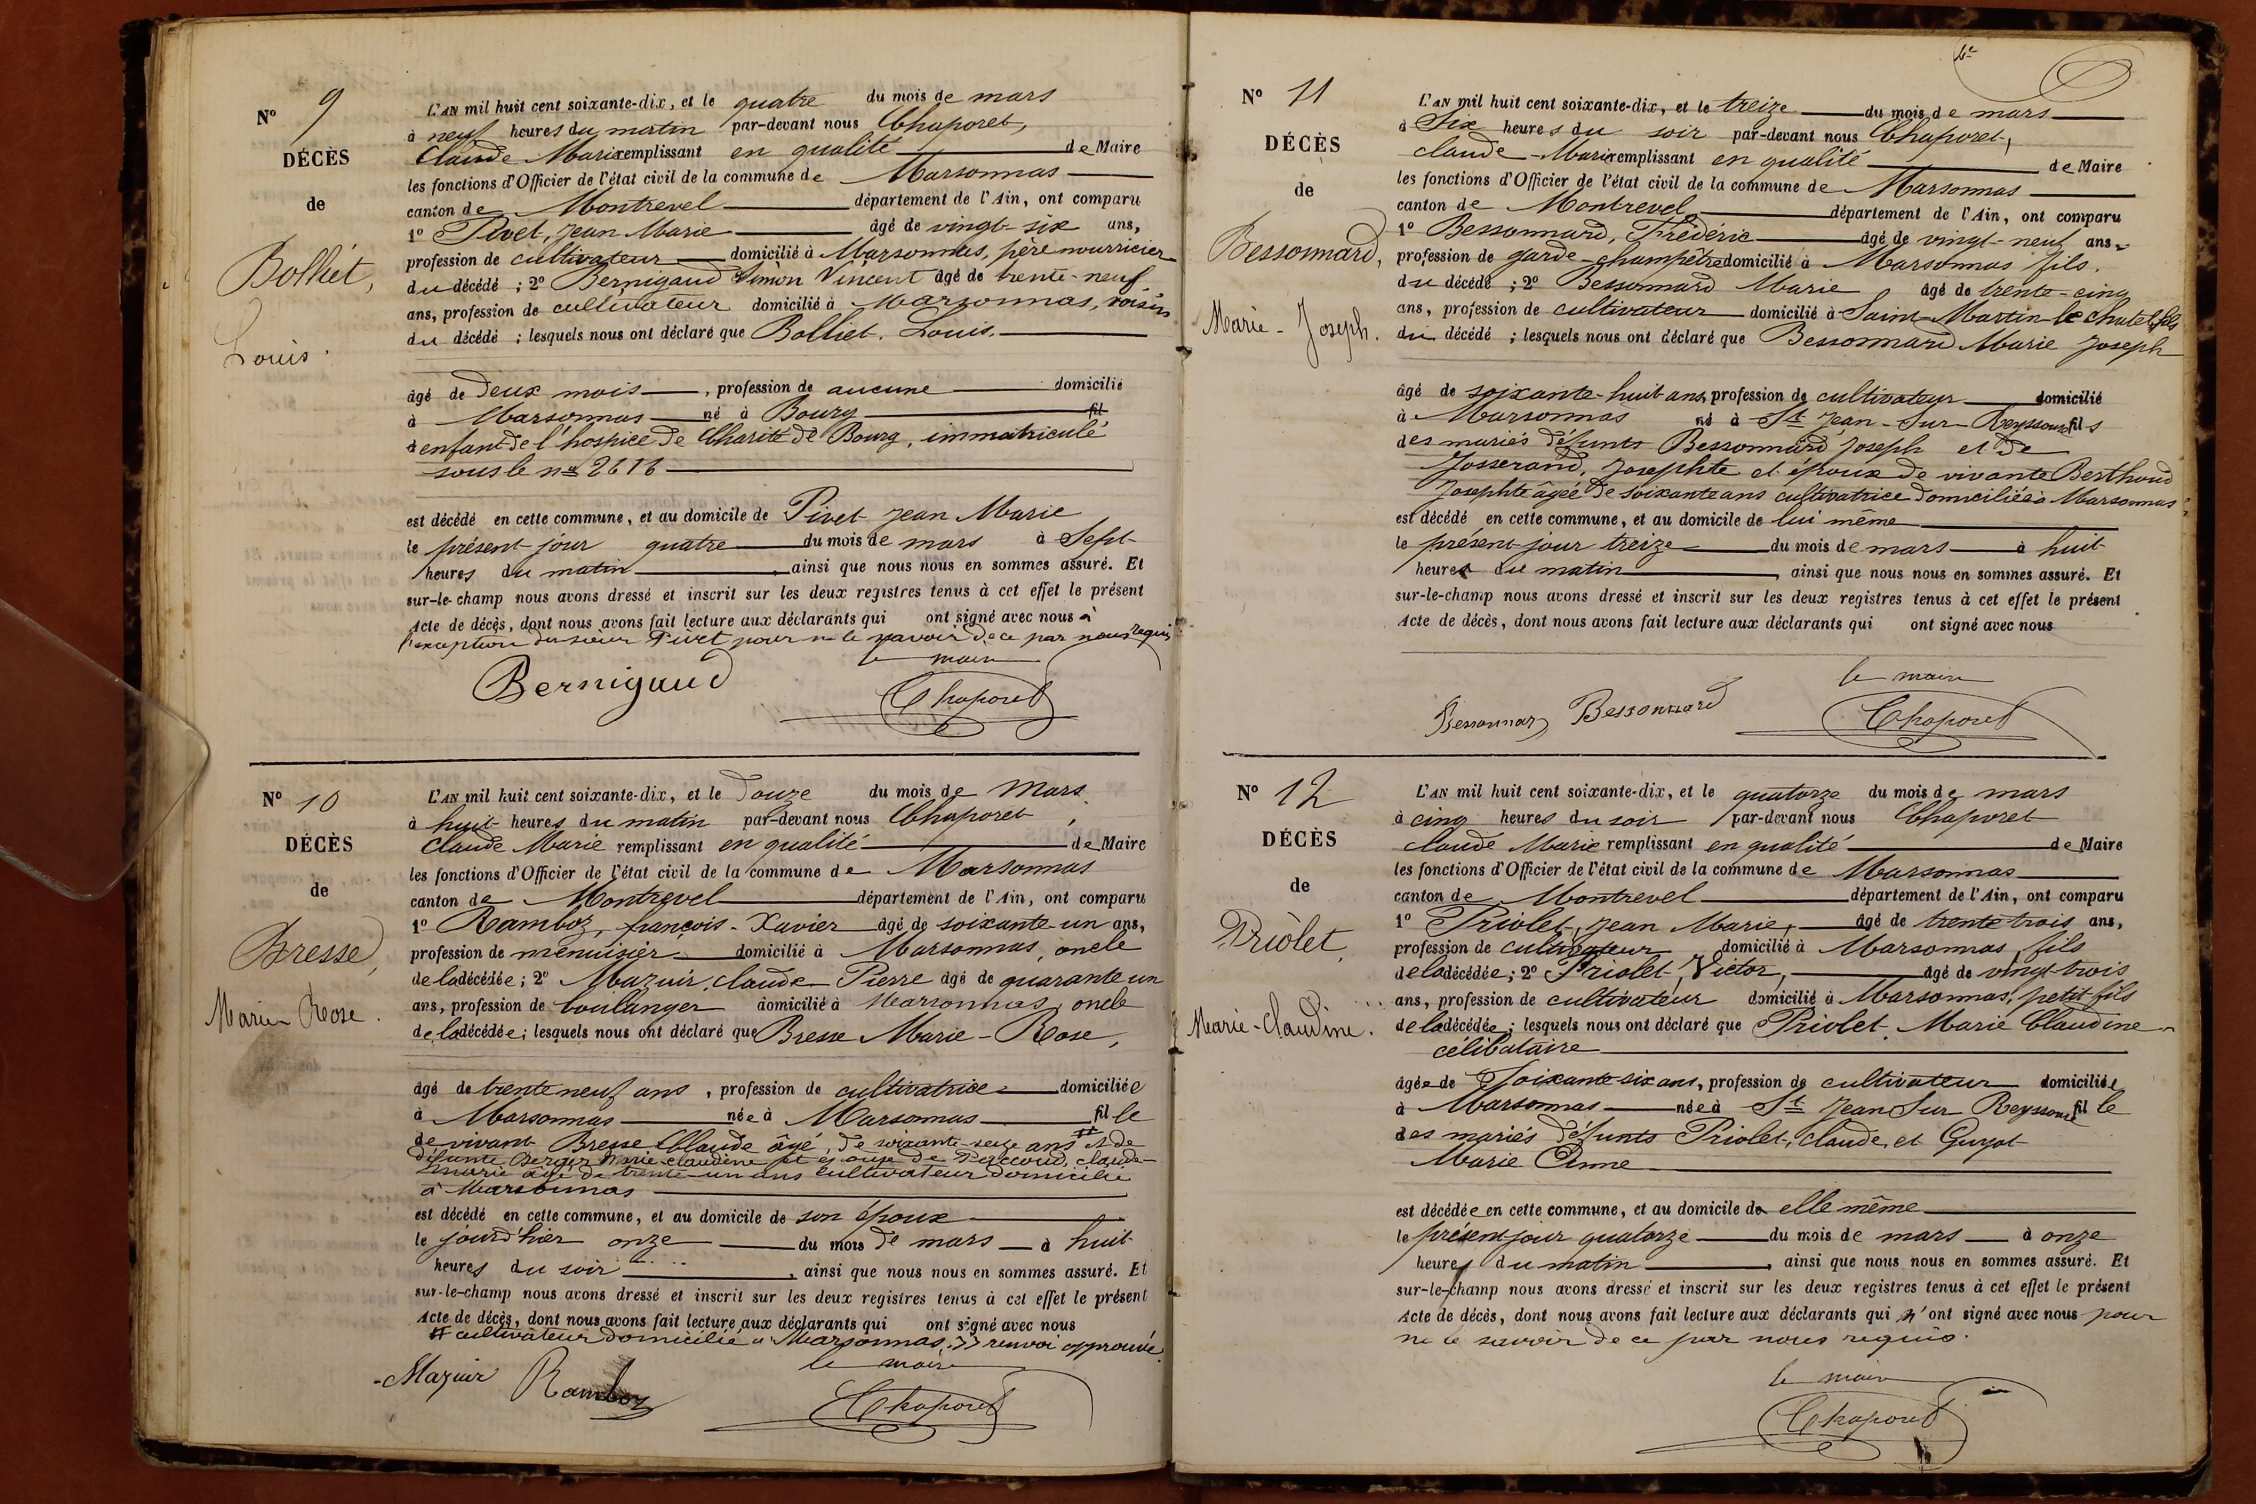 Nº 9
DÉCÈS
de
Bolliet,
Louis.
L'AN mil huit cent soixante-dix, et le quatre du mois de mars
à neuf heures du matin par-devant nous Chaporet,
Claude Marie remplissant en qualité de Maire
les fonctions d'Officier de l'état civil de la commune de Marsonnas
canton de Montrevel département de l'Ain, ont comparu
1º Pivet, Jean Marie âgé de vingt-six ans,
profession de cultivateur domicilié à Marsonnas, père nourricier
du décédé ; 2º Bernigaud Simon Vincent âgé de trente-neuf
ans, profession de cultivateur domicilié à Marsonnas, voisin
du décédé ; lesquels nous ont déclaré que Bolliet, Louis,
âgé de deux mois, profession de aucune domicilié
à Marsonnas né à Bourg fil
d enfant de l'hospice de Charité de Bourg, immatriculé
sous le nº 2616
est décédé en cette commune, et au domicile de Pivet Jean Marie
le présent jour quatre du mois de mars à Sept
heures du matin, ainsi que nous nous en sommes assuré. Et
sur-le-champ nous avons dressé et inscrit sur les deux registres tenus à cet effet le présent
Acte de décès, dont nous avons fait lecture aux déclarants qui ont signé avec nous à
l'exception du sieur Pivet pour ne le savoir de ce par nous requis
le maire
Bernigaud Chaporet
Nº 10
DÉCÈS
de
Bresse,
Marie Rose.
L'AN mil huit cent soixante-dix, et le douze du mois de Mars
à huit heures du matin par-devant nous Chaporet,
Claude Marie remplissant en qualité de Maire
les fonctions d'Officier de l'état civil de la commune de Marsonnas
canton de Montrevel département de l'Ain, ont comparu
1º Ramboz, françois-Xavier âgé de soixante-un ans,
profession de menuisier domicilié à Marsonnas, oncle
de la décédée ; 2º Mazuir, claude Pierre âgé de quarante un
ans, profession de boulanger domicilié à Marsonnas, oncle
de la décédée ; lesquels nous ont déclaré que Bresse Marie-Rose,
âgé de trente neuf ans, profession de cultivatrice domiciliée
à Marsonnas née à Marsonnas fille
de vivant Bresse Claude âgé de soixante-seize ans # et de
défunte Berger Marie-Claudine et épouse de Perccoud, claude-
marie âgé de trente-un ans cultivateur domicilié
à Marsonnas
est décédé en cette commune, et au domicile de son époux
le jour d'hier onze du mois de mars à huit
heures du soir, ainsi que nous nous en sommes assuré. Et
sur-le-champ nous avons dressé et inscrit sur les deux registres tenus à cet effet le présent
Acte de décès, dont nous avons fait lecture aux déclarants qui ont signé avec nous
# cultivateur domicilié à Marsonnas. renvoi approuvé.
le maire
Mazuir Ramboz Chaporet
Nº 11
DÉCÈS
de
Bessonnard,
Marie-Joseph.
L'AN mil huit cent soixante-dix, et le treize du mois de mars
à Six heures du soir par-devant nous Chaporet,
claude-Marie remplissant en qualité de Maire
les fonctions d'Officier de l'état civil de la commune de Marsonnas
canton de Montrevel département de l'Ain, ont comparu
1º Bessonnard, Frédéric âgé de vingt-neuf ans,
profession de garde-champêtre domicilié à Marsonnas fils
du décédé ; 2º Bessonnard Marie âgé de trente-cinq
ans, profession de cultivateur domicilié à Saint-Martin-le chatel, fils
du décédé ; lesquels nous ont déclaré que Bessonnard Marie Joseph
âgé de soixante-huit ans, profession de cultivateur domicilié
à Marsonnas né à St Jean-Sur-Reyssouze fils
des mariés défunts Bessonnard Joseph et de
Josserand, Josephte et époux de vivante Berthoud
Josephte âgée de soixante ans cultivatrice domiciliée à Marsonnas
est décédé en cette commune, et au domicile de lui même
le présent jour treize du mois de mars à huit
heures du matin, ainsi que nous nous en sommes assuré. Et
sur-le-champ nous avons dressé et inscrit sur les deux registres tenus à cet effet le présent
Acte de décès, dont nous avons fait lecture aux déclarants qui ont signé avec nous
le maire
Bessonnard Bessonnard Chaporet
Nº 12
DÉCÈS
de
Priolet,
Marie-Claudine.
L'AN mil huit cent soixante-dix, et le quatorze du mois de mars
à cinq heures du soir par-devant nous Chaporet
claude Marie remplissant en qualité de Maire
les fonctions d'Officier de l'état civil de la commune de Marsonnas
canton de Montrevel département de l'Ain, ont comparu
1º Priolet, Jean Marie, âgé de trente trois ans,
profession de cultivateur domicilié à Marsonnas fils
de la décédée ; 2º Priolet, Victor, âgé de vingt-trois
ans, profession de cultivateur domicilié à Marsonnas, petit fils
de la décédée ; lesquels nous ont déclaré que Priolet Marie Claudine
célibataire
âgée de Soixante six ans, profession de cultivateur domiciliée
à Marsonnas née à St Jean Sur Reyssouze fille
des mariés défunts Priolet, Claude, et Guyot
Marie Anne
est décédée en cette commune, et au domicile de elle même
le présent jour quatorze du mois de mars à onze
heures du matin, ainsi que nous nous en sommes assuré. Et
sur-le-champ nous avons dressé et inscrit sur les deux registres tenus à cet effet le présent
Acte de décès, dont nous avons fait lecture aux déclarants qui n'ont signé avec nous pour
ne le savoir de ce par nous requis.
le maire
Chaporet